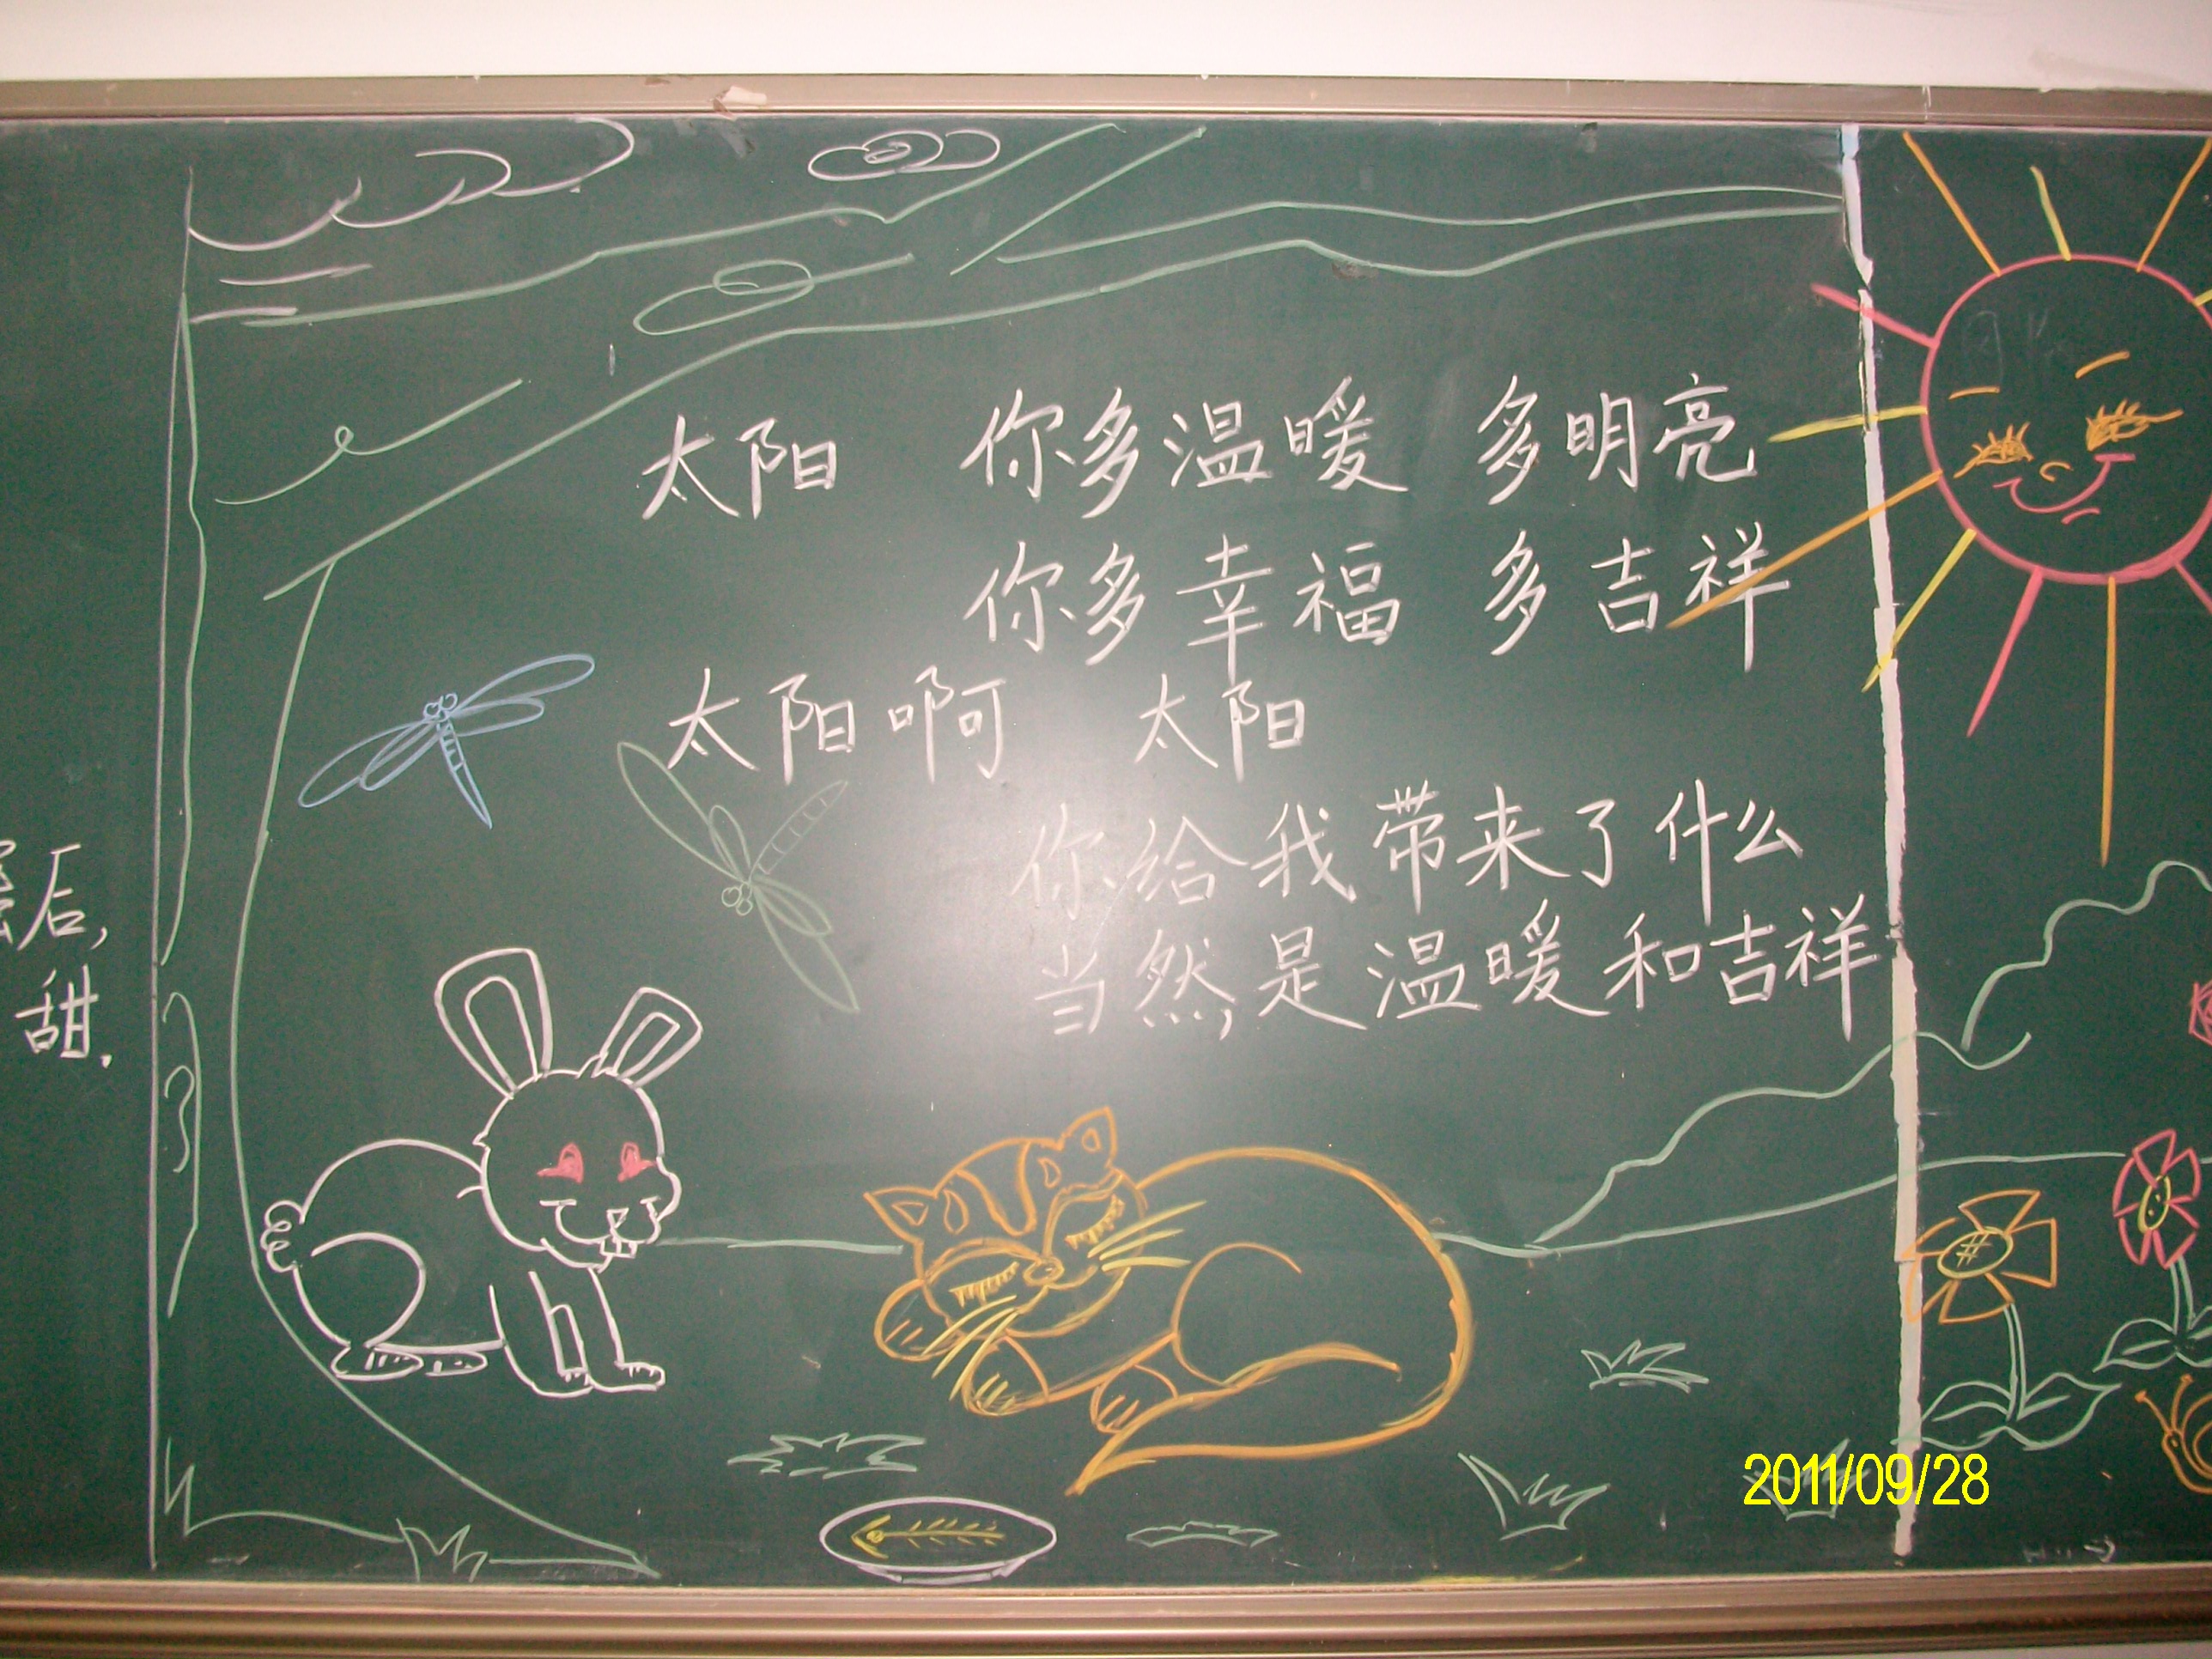 太阳 你多温暖 多明亮
你多幸福 多吉祥
太阳啊 太阳
你给我带来了什么
当然,是温暖和吉祥
后,
甜.
2011/09/28